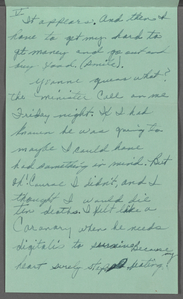 V
It appears. And then I
have to get my hard to
get money and go and
buy food (smile).
Yvonne guess what?
the minister call on me
Friday night. If I had
known he was going to
maybe I could have
had something in mind. But
Of Course I didn't and I
thought I would die
ten deaths. I felt like a
Coronary when he needs
digitalis to because my
heart surely stop beating!